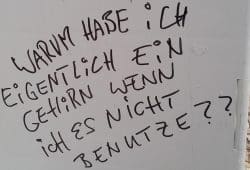 WARUM HABE iCH
EiGENTLiCH EiN
GEHiRN WENN
iCH ES NiCHT
BENUTZE??